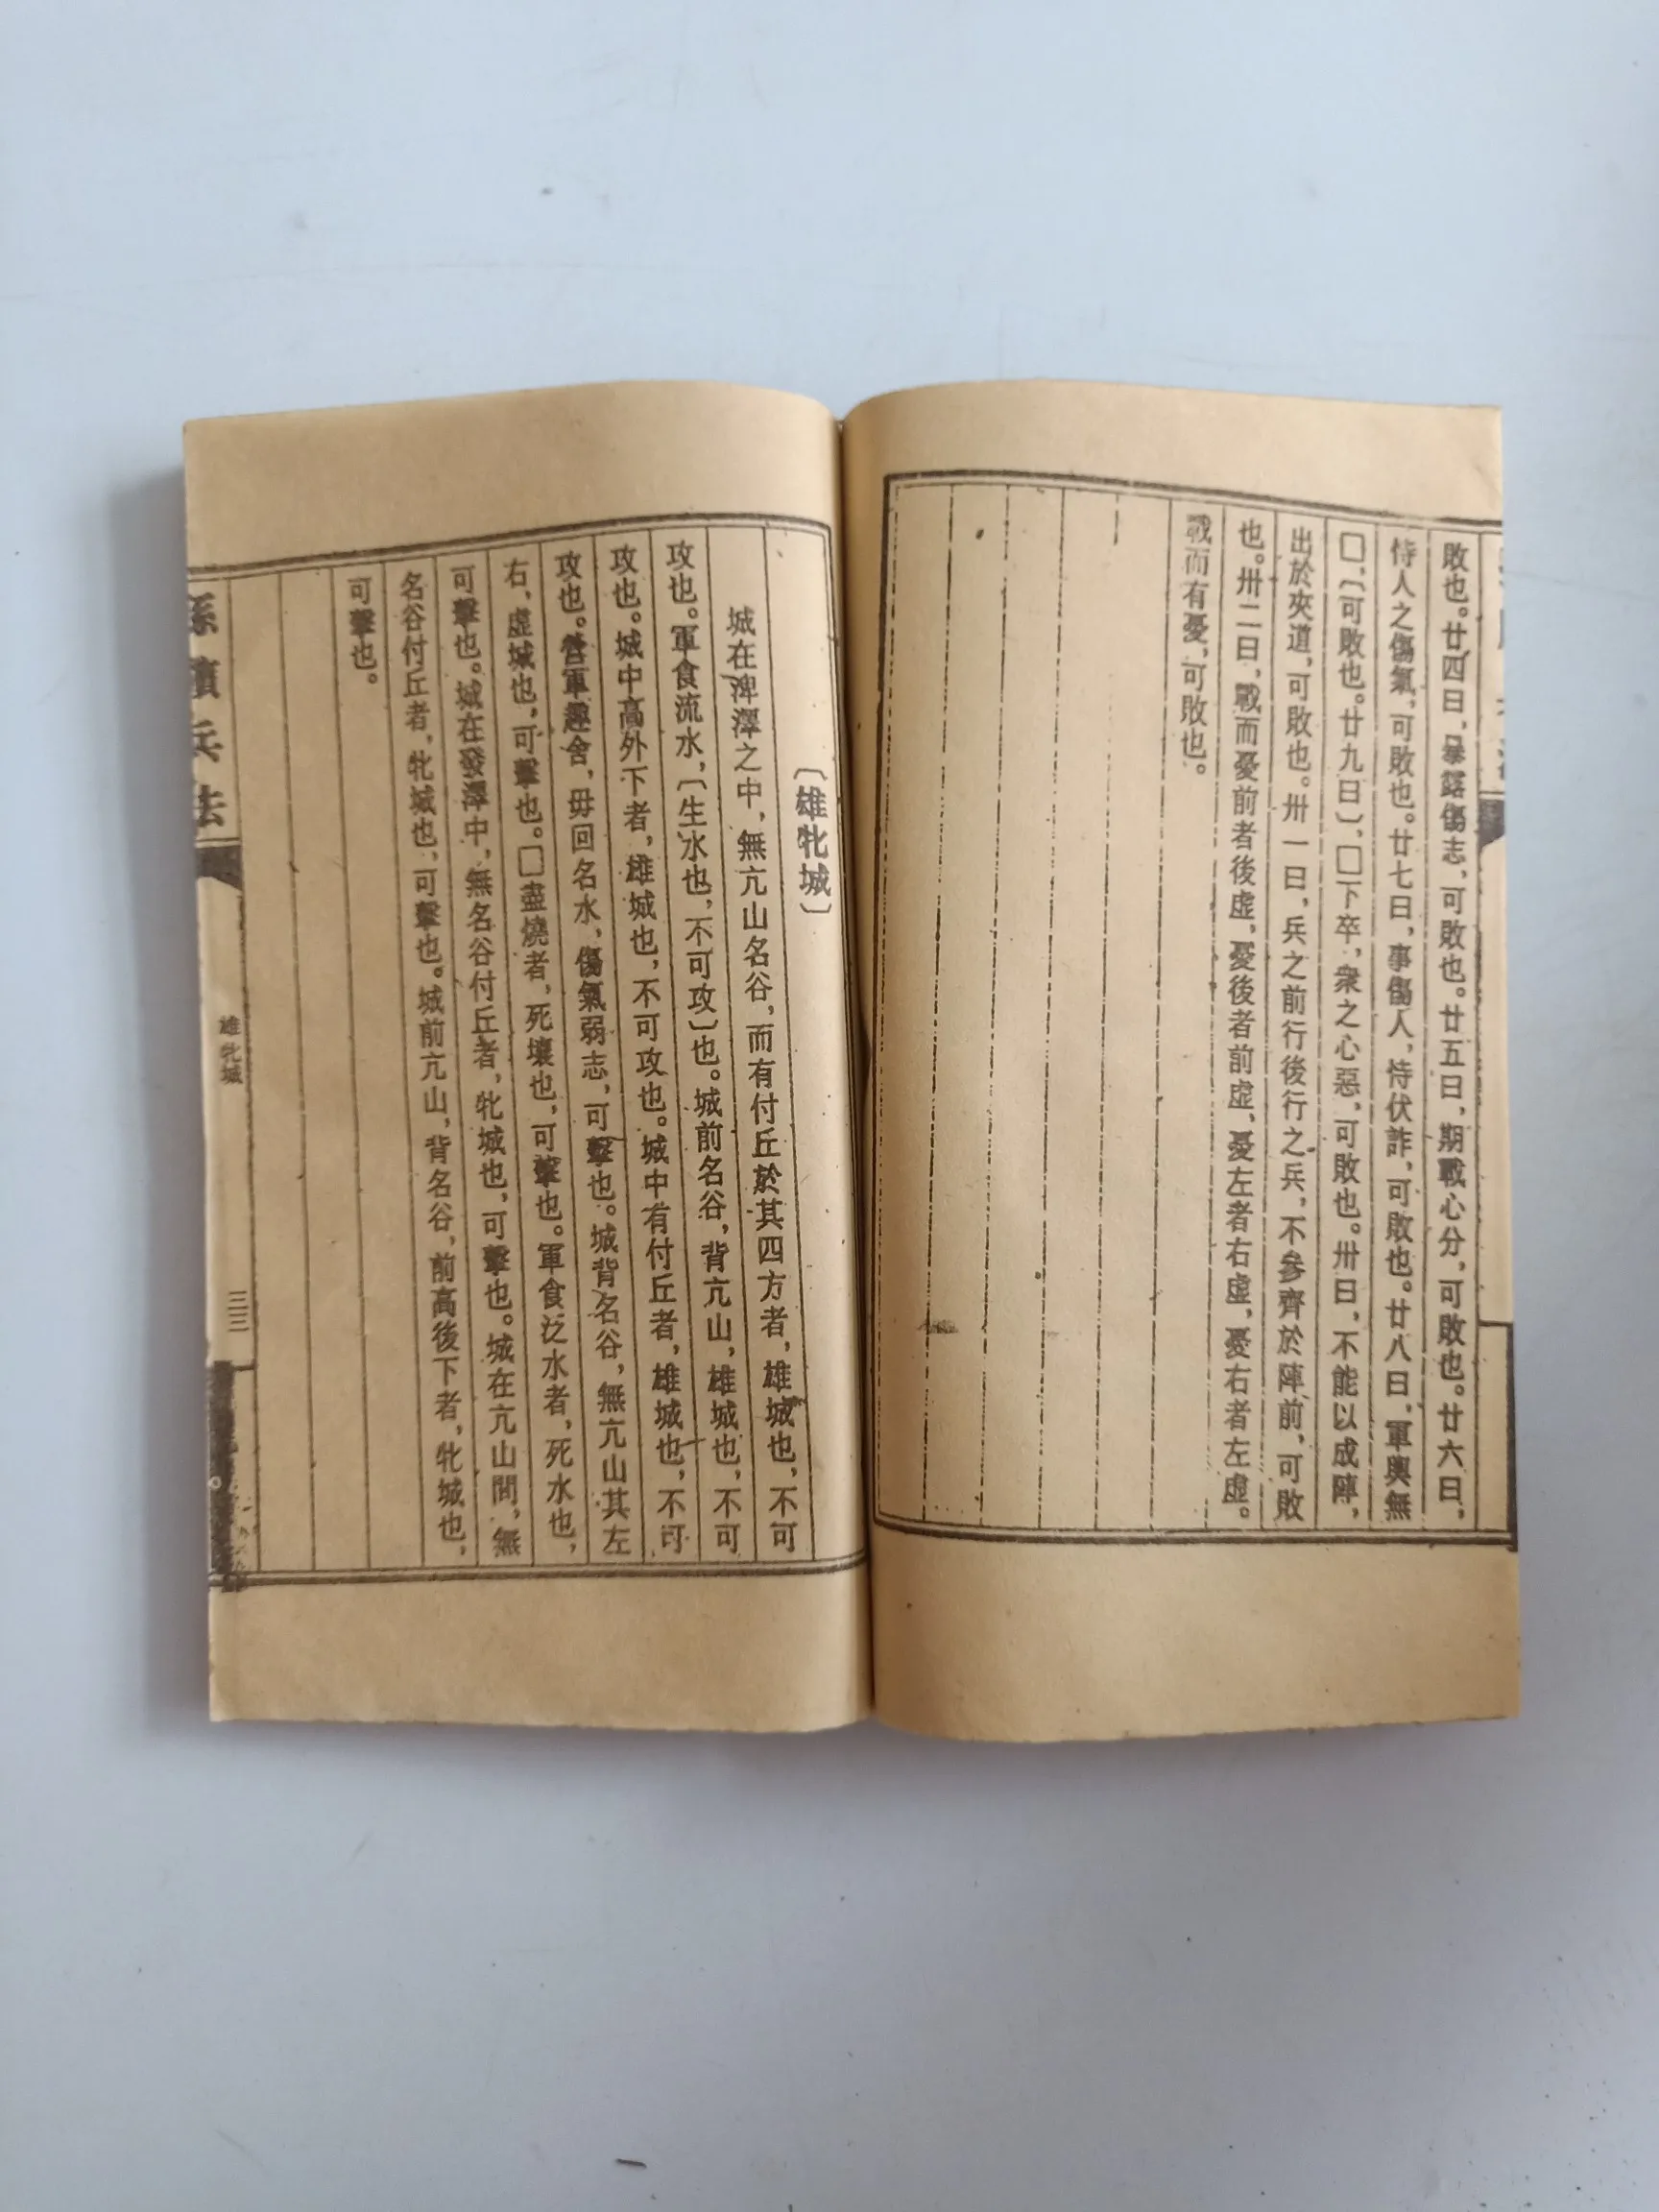 敗也。廿四曰，暴露傷志，可敗也。廿五曰，期戰心分，可敗也。廿六曰，
恃人之傷氣，可敗也。廿七曰，事傷人，恃伏詐，可敗也。廿八曰，軍輿無
□，〔可敗也。廿九曰〕，□下卒，衆之心惡，可敗也。卅曰，不能以成陣，
出於夾道，可敗也。卅一曰，兵之前行後行之兵，不參齊於陣前，可敗
也。卅二曰，戰而憂前者後虛，憂後者前虛，憂左者右虛，憂右者左虛。
戰而有憂，可敗也。
〔雄牝城〕
城在渒澤之中，無亢山名谷，而有付丘於其四方者，雄城也，不可
攻也。軍食流水，〔生水也，不可攻〕也。城前名谷，背亢山，雄城也，不可
攻也。城中高外下者，雄城也，不可攻也。城中有付丘者，雄城也，不可
攻也。營軍趣舍，毋回名水，傷氣弱志，可擊也。城背名谷，無亢山其左
右，虛城也，可擊也。□盡燒者，死壤也，可擊也。軍食泛水者，死水也，
可擊也。城在發澤中，無名谷付丘者，牝城也，可擊也。城在亢山間，無
名谷付丘者，牝城也，可擊也。城前亢山，背名谷，前高後下者，牝城也，
可擊也。
孫臏兵法
雄牝城
三三